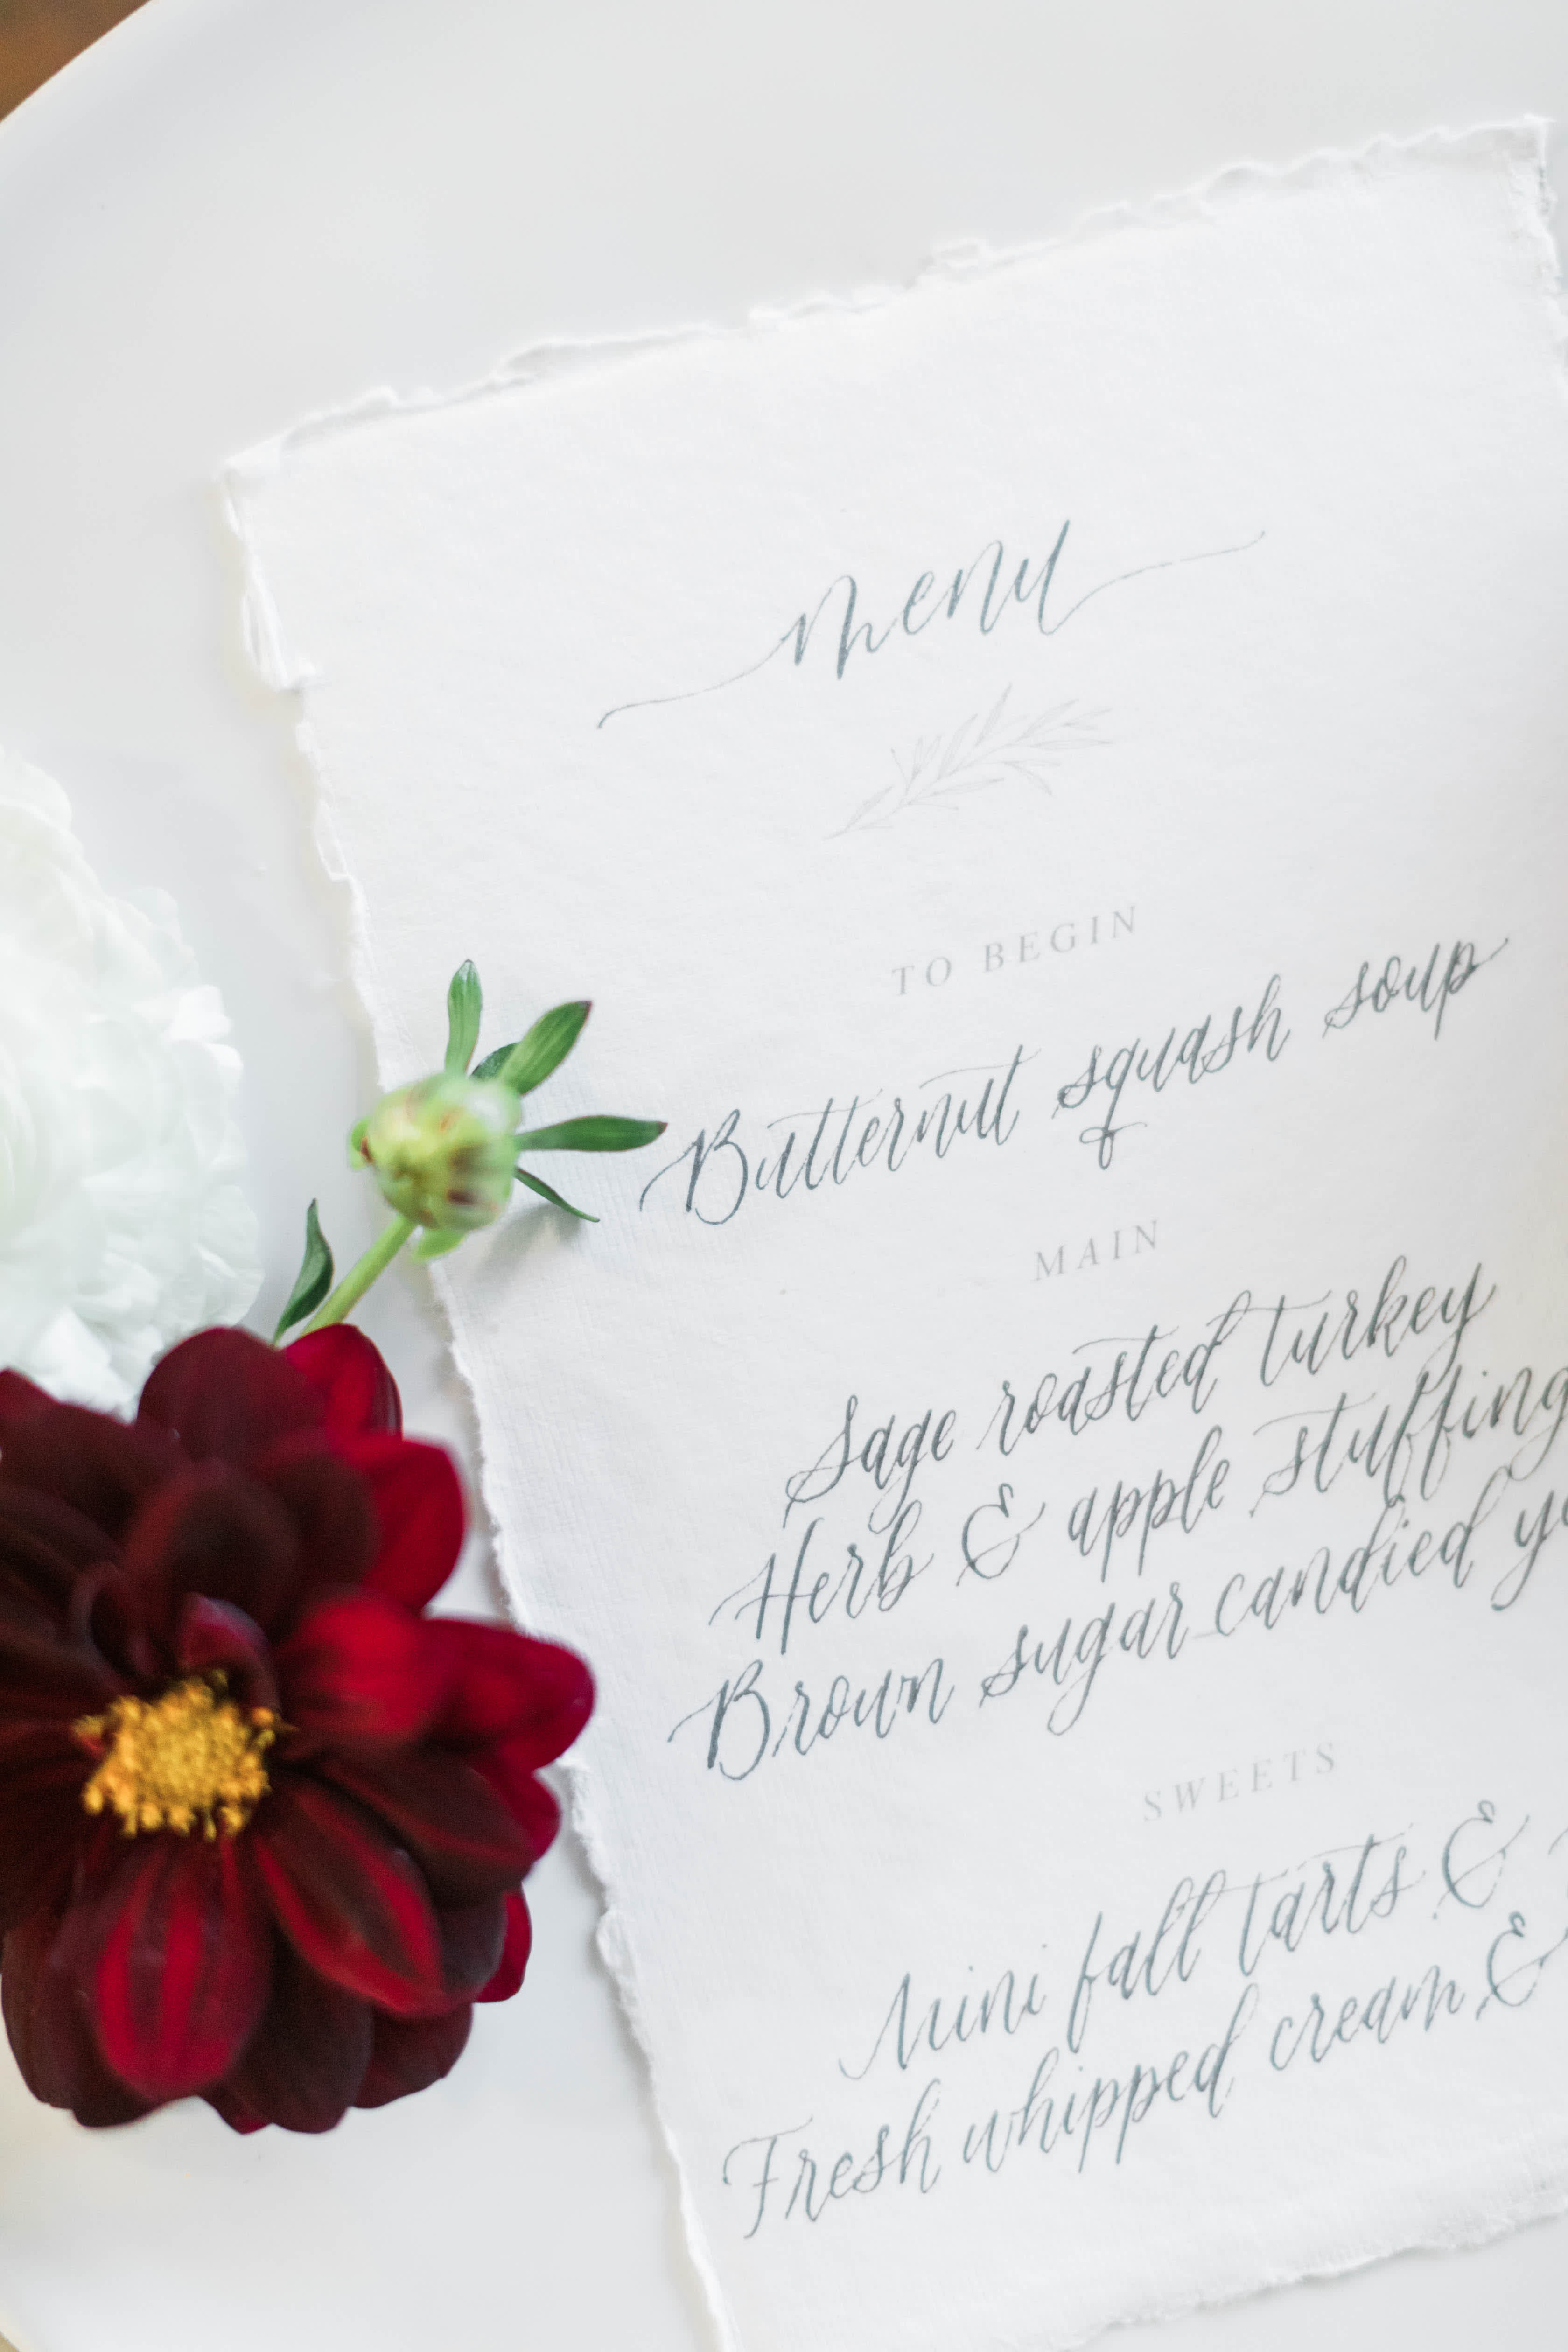 menu
TO BEGIN
Butternut squash soup
MAIN
Sage roasted turkey
Herb & apple stuffing
Brown sugar candied
SWEETS
Mini fall tarts &
Fresh whipped cream &